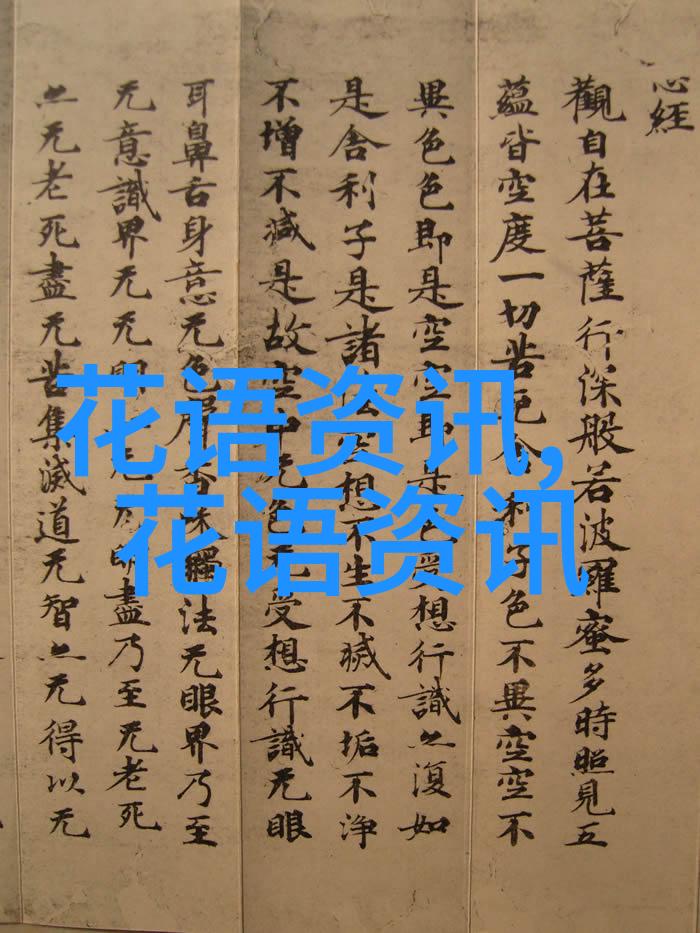 心經
觀自在菩薩行深般若波羅蜜多時照見五
蘊皆空度一切苦厄舍利子色不異空空不
異色色即是空空即是色受想行識亦復如
是舍利子是諸法空想不生不滅不垢不淨
不增不減是故空中无色无受想行識无眼
耳鼻舌身意无色聲香味觸法无眼界乃至
无意識界无无明无明盡乃至无老死
亦无老死盡无苦集滅道无智亦无得以无
花语资讯,
花语资讯